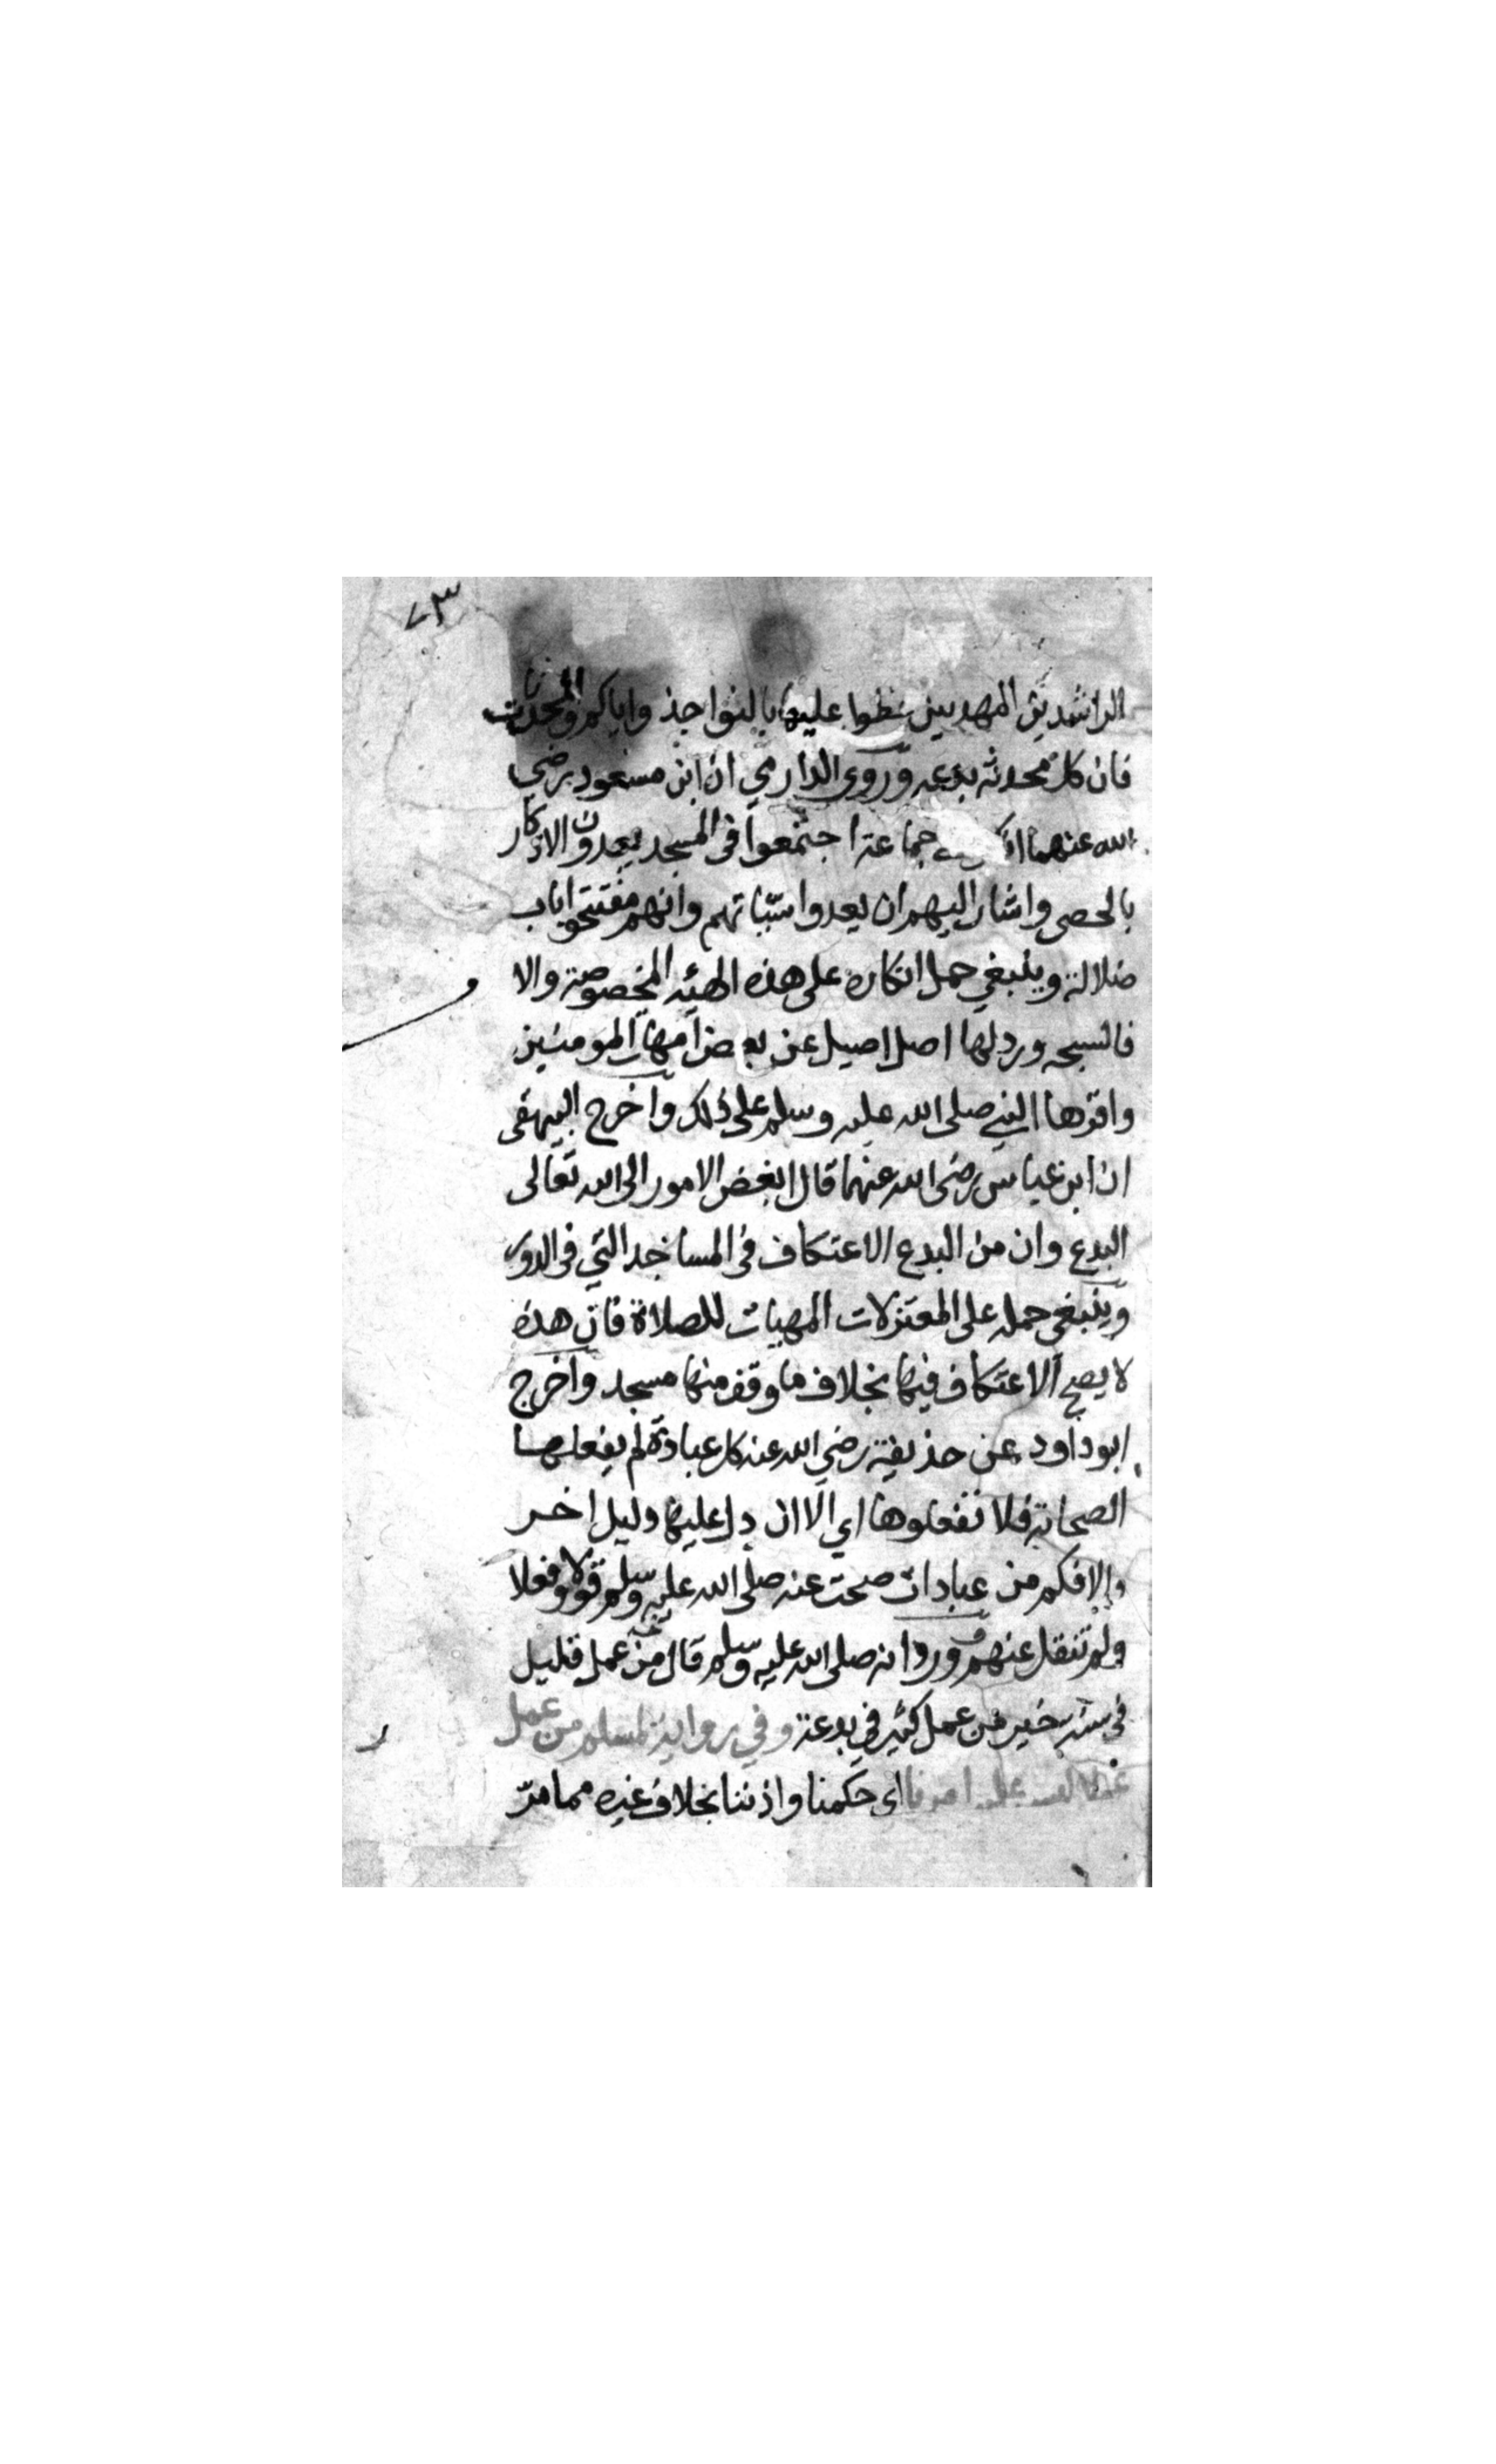 ٧٣
الراشدين المهديين عظوا عليها بالنواجذ واياكم والمحدثات
فان كل محدثه بدعه وروى الدارمي ان ابن مسعود رضي
الله عنهما جماعة اجتمعوا في المسجد يعدون الاذكار
بالحصى واشار اليهم ان يعدوا سيئاتهم وانهم مفتتحوا باب
ضلالة وينبغي حمل انكاره على هذه الهيئه المخصوصة والا
فالسبحه ورد لها اصل اصيل عن بعض امهات المومنين
واقرها النبي صلى الله عليه وسلم على ذلك واخرج البيهقى
ان ابن عباس رضى الله عنهما قال ابغض الامور الى الله تعالى
البدع وان من البدع الاعتكاف في المساجد التي في الدور
وينبغي حمله على المعتزلات المهيات للصلاة فان هذه
لا يصح الاعتكاف فيها بخلاف ما وقف منها مسجد واخرج
ابو داود عن حذيفة رضي الله عنه كل عبادة لم يفعلها
الصحابة فلا تفعلوها اي الا ان دل عليها دليل اخر
والا فكم من عبادات صحت عنه صلى الله عليه وسلم قولا وفعلا
ولم تنقل عنهم وورد انه صلى الله عليه وسلم قال من عمل قليل
في سنة خير من عمل كثير في بدعة وفي رواية لمسلم من عمل
عملا ليس عليه امرنا اى حكمنا واذننا بخلاف غيره مما مرّ